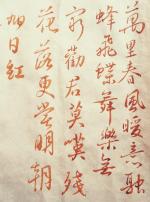 萬里春風暖意融
蜂飛蝶舞樂無
窮勸君莫嘆殘
花落更賞明朝
旭日紅